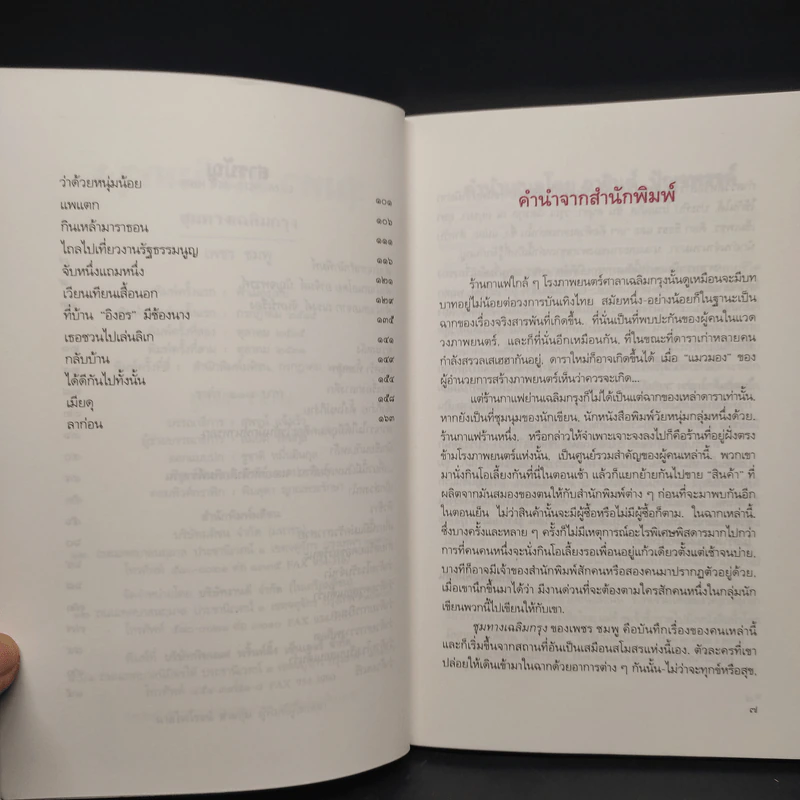 ว่าด้วยหนุ่มน้อย ๑๐๑
แพแตก ๑๐๖
กินเหล้ามาราธอน ๑๑๑
ไถลไปเที่ยวงานรัฐธรรมนูญ ๑๑๖
จับหนึ่งแถมหนึ่ง ๑๒๑
เวียนเทียนเสื้อนอก ๑๒๙
ที่บ้าน “อิงอร” มีช้องนาง ๑๓๕
เธอชวนไปเล่นลิเก ๑๔๑
กลับบ้าน ๑๔๙
ได้ดีกันไปทั้งนั้น ๑๕๔
เมียดุ ๑๕๘
ลาก่อน ๑๖๓
คำนำจากสำนักพิมพ์
ร้านกาแฟใกล้ ๆ โรงภาพยนตร์ศาลาเฉลิมกรุงนั้นดูเหมือนจะมีบท
บาทอยู่ไม่น้อยต่อวงการบันเทิงไทย สมัยหนึ่ง-อย่างน้อยก็ในฐานะเป็น
ฉากของเรื่องจริงสารพันที่เกิดขึ้น. ที่นั่นเป็นที่พบปะกันของผู้คนในแวด
วงภาพยนตร์. และก็ที่นั่นอีกเหมือนกัน, ที่ในขณะที่ดาราเก่าหลายคน
กำลังสรวลเสเฮฮากันอยู่, ดาราใหม่ก็อาจเกิดขึ้นได้ เมื่อ “แมวมอง” ของ
ผู้อำนวยการสร้างภาพยนตร์เห็นว่าควรจะเกิด...
แต่ร้านกาแฟย่านเฉลิมกรุงก็ไม่ได้เป็นแต่ฉากของเหล่าดาราเท่านั้น.
หากยังเป็นที่ชุมนุมของนักเขียน, นักหนังสือพิมพ์วัยหนุ่มกลุ่มหนึ่งด้วย.
ร้านกาแฟร้านหนึ่ง, หรือกล่าวให้จำเพาะเจาะจงลงไปก็คือร้านที่อยู่ฝั่งตรง
ข้ามโรงภาพยนตร์แห่งนั้น, เป็นศูนย์รวมสำคัญของผู้คนเหล่านี้. พวกเขา
มานั่งกินโอเลี้ยงกันที่นี่ในตอนเช้า แล้วก็แยกย้ายกันไปขาย “สินค้า” ที่
ผลิตจากมันสมองของตนให้กับสำนักพิมพ์ต่าง ๆ ก่อนที่จะมาพบกันอีก
ในตอนเย็น ไม่ว่าสินค้านั้นจะมีผู้ซื้อหรือไม่มีผู้ซื้อก็ตาม. ในฉากเหล่านี้,
ซึ่งบางครั้งและหลาย ๆ ครั้งก็ไม่มีเหตุการณ์อะไรพิเศษพิสดารมากไปกว่า
การที่คนคนหนึ่งจะนั่งกินโอเลี้ยงรอเพื่อนอยู่แก้วเดียวตั้งแต่เช้าจนบ่าย,
บางทีก็อาจมีเจ้าของสำนักพิมพ์สักคนหรือสองคนมาปรากฏตัวอยู่ด้วย,
เมื่อเขานึกขึ้นมาได้ว่า มีงานด่วนที่จะต้องตามใครสักคนหนึ่งในกลุ่มนัก
เขียนพวกนี้ไปเขียนให้กับเขา.
ชุมทางเฉลิมกรุง ของเพชร ชมพู คือบันทึกเรื่องของคนเหล่านี้
และก็เริ่มขึ้นจากสถานที่อันเป็นเสมือนสโมสรแห่งนี้เอง. ตัวละครที่เขา
ปล่อยให้เดินเข้ามาในฉากด้วยอาการต่าง ๆ กันนั้น-ไม่ว่าจะทุกข์หรือสุข,
๗